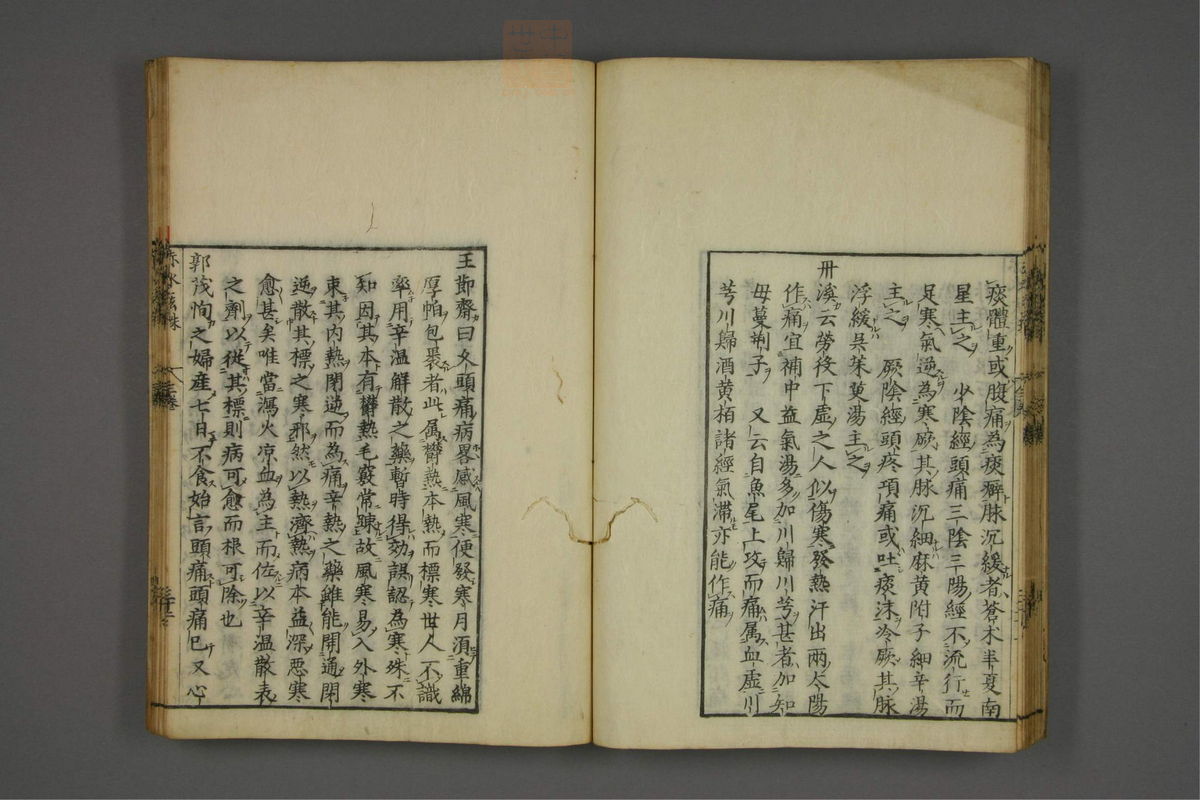 痰體重或腹痛為痰癖脉沉緩者蒼朮半夏南
星主之　少陰經頭痛三陰三陽經不流行而
足寒氣逆為寒厥其脉沉細麻黄附子細辛湯
主之　厥陰經頭疼項痛或吐痰沫冷厥其脉
浮緩吴茱萸湯主之
丹溪云勞役下虛之人似傷寒發熱汗出兩太陽
作痛宜補中益氣湯多加川歸川芎甚者加知
毋蔓荆子　又云自魚尾上攻而痛属血虛川
芎川歸酒黄栢諸經氣滯亦能作痛
王節齋曰久頭痛病畧感風寒便發寒月湏重綿
厚帕包裹者此属欝熱本熱而標寒世人不識
率用辛温觧散之藥暫時得効誤認為寒殊不
知因其本有欝熱毛竅常踈故風寒易入外寒
束其内熱閉逆而為痛辛熱之藥雖能開通閉
逆散其標之寒邪然以熱濟熱病本益深惡寒
愈甚矣唯當瀉火凉血為主而佐以辛温散表
之劑以從其標則病可愈而根可除也
郭茂恂之婦産七日不食始言頭痛頭痛巳又心
赤水玄珠
三卷